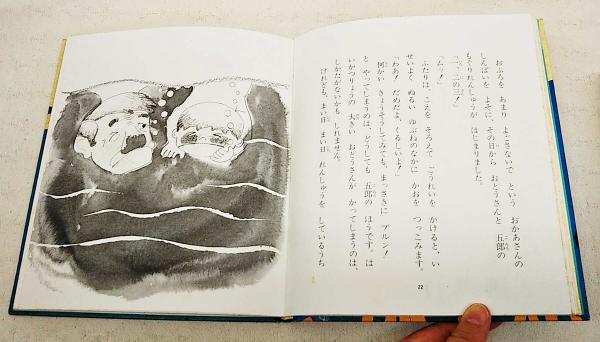 おふろを あまり よごさないで という おかあさんの
しんぱいを よそに、その日から おとうさんと 五郎の
もぐりれんしゅうが はじまりました。
「一、二の三!」
「ムッ!」
ふたりは、こえを そろえて ごうれいを かけると、い
せいよく ぬるい ゆぶねのなかに かおを つっこみます。
「わあ! だめだよ、くるしいよ!」
何かい きょうそうしてみても、まっさきに プルン!
と やってしまうのは、どうしても 五郎の ほうです。は
いかつりょうの 大きい おとうさんが かってしまうのは、
しかたがないかも しれません。
けれども、まい日 まい日 れんしゅうを しているうち
22